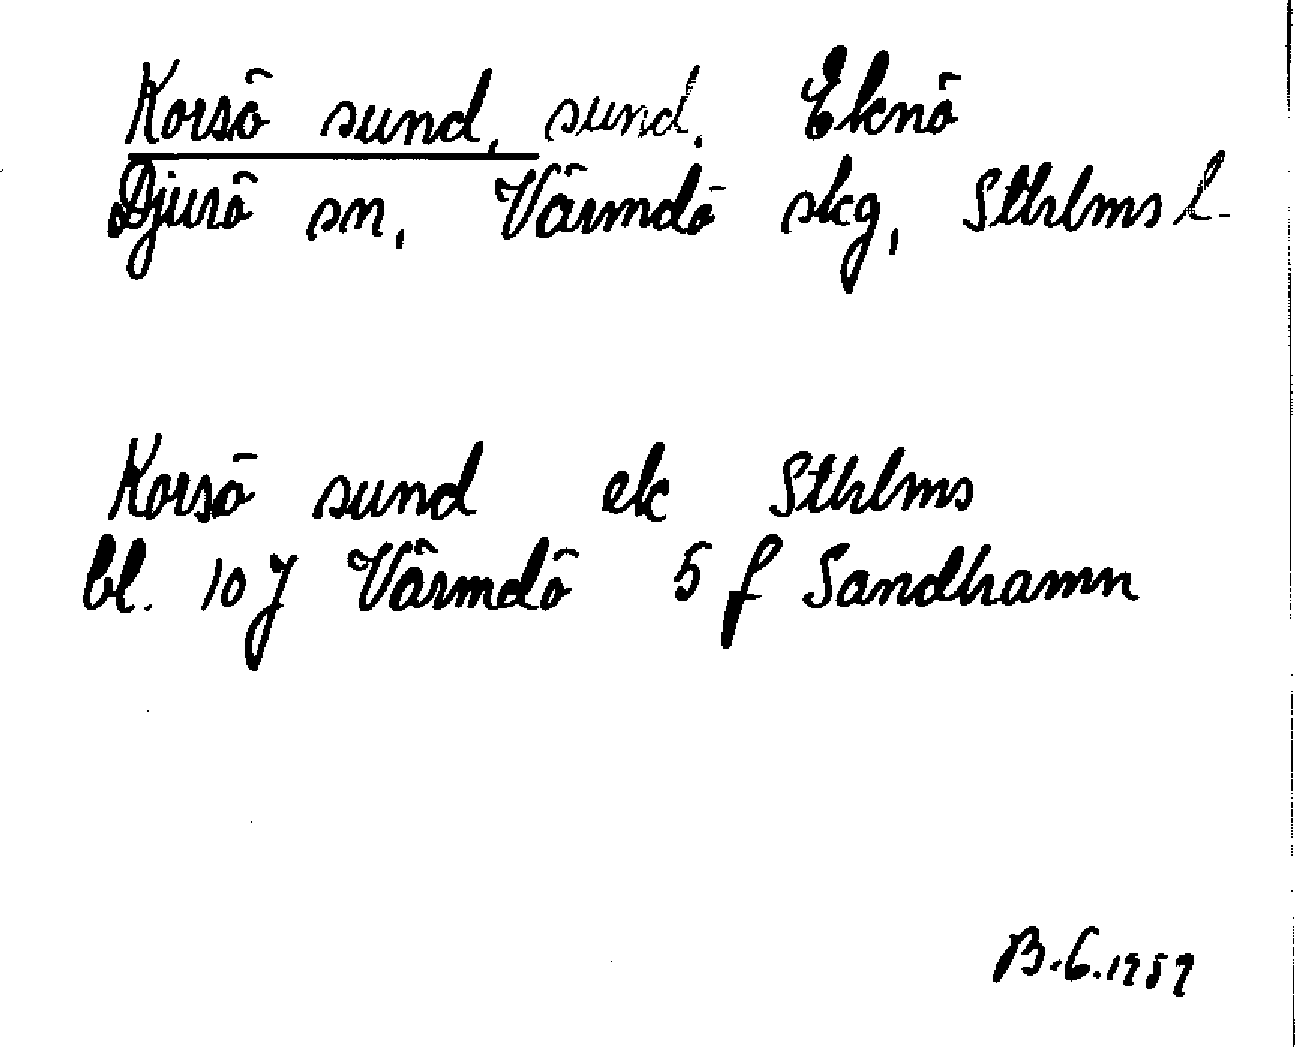 Korsö sund, sund. Eknö
Djurö sn, Värmdö skg, Sthlms l.
Korsö sund ek Sthlms
bl. 10 J Värmdö 5 f Sandhamn
B.G. 1959